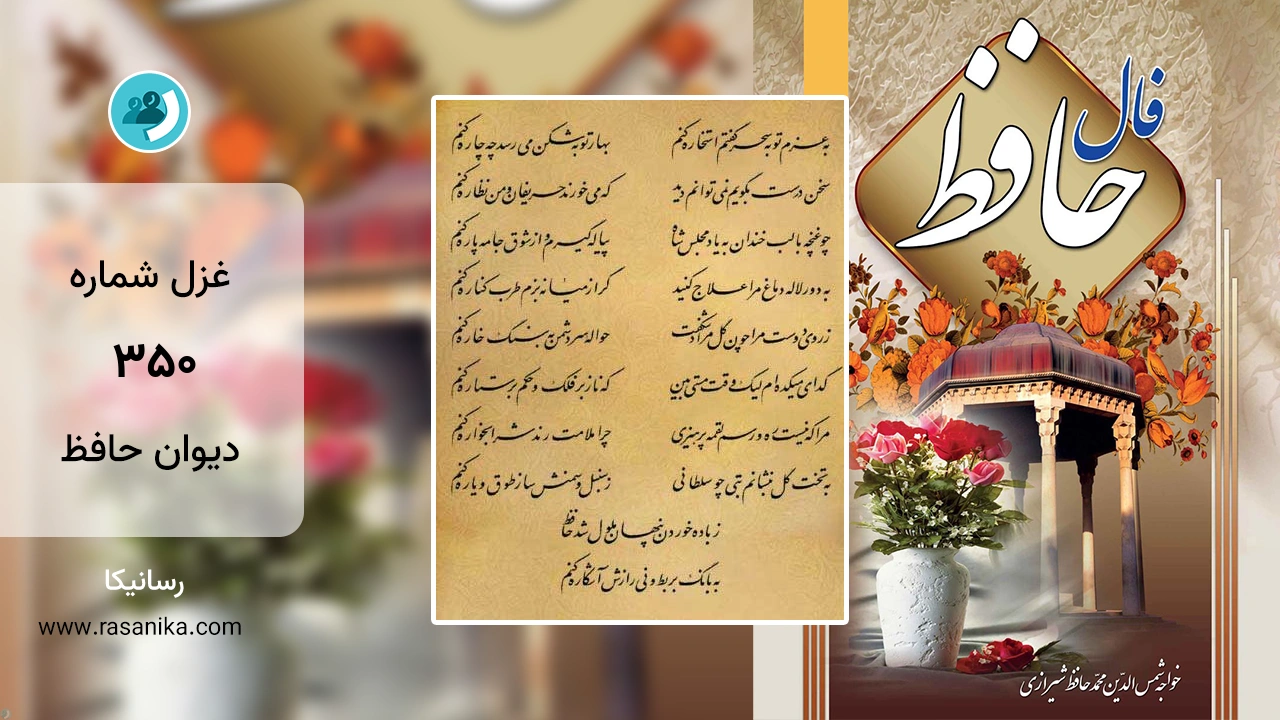 فال
حافظ
غزل شماره
۳۵۰
دیوان حافظ
رسانیکا
www.rasanika.com
به عزم توبه سحر گفتم استخاره کنم
بهار توبه شکن می رسد چه چاره کنم
سخن درست بگویم نمی توانم دید
که می خورند حریفان و من نظاره کنم
چو غنچه با لب خندان به یاد مجلس شاه
پیاله گیرم و از شوق جامه پاره کنم
به دور لاله دماغ مرا علاج کنید
گر از میانه بزم طرب کناره کنم
ز روی دوست مرا چون گل مراد شکفت
حواله سر دشمن به سنگ خاره کنم
گدای میکده ام لیک وقت مستی بین
که ناز بر فلک و حکم بر ستاره کنم
مرا که نیست ره و رسم لقمه پرهیزی
چرا ملامت رند شرابخواره کنم
به تخت گل بنشانم بتی چو سلطانی
ز سنبل و سمنش ساز طوق و یاره کنم
ز باده خوردن پنهان ملول شد حافظ
به بانگ بربط و نی رازش آشکاره کنم
خواجه شمس الدین محمد حافظ شیرازی